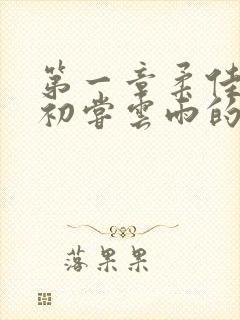 第一章柔佳
初尝雲雨的
落果果